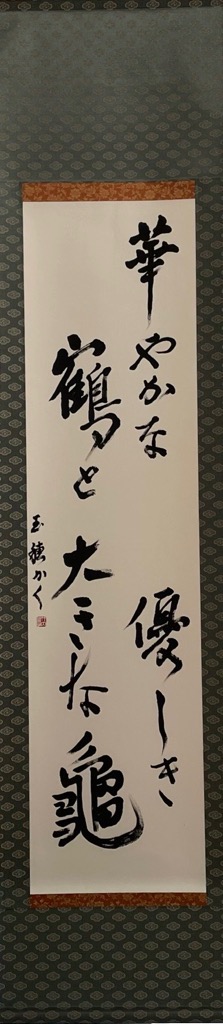 華やかな 優しき
鶴と大きな龜
玉穂かく